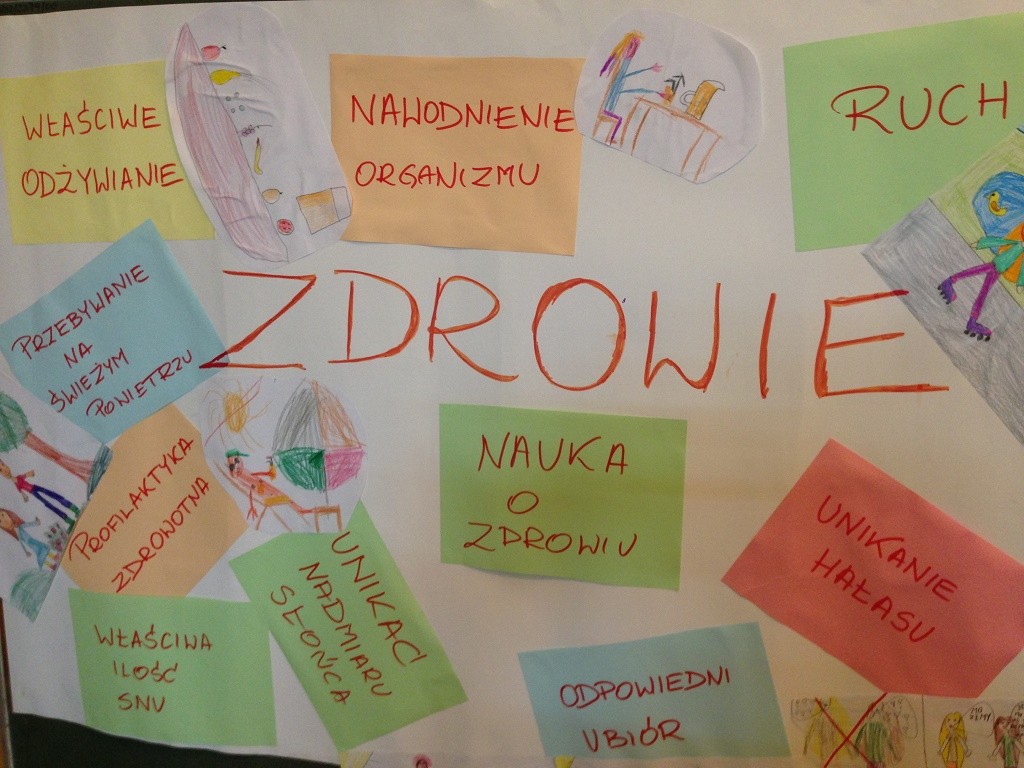 WŁAŚCIWE
ODŻYWIANIE
NAWODNIENIE
ORGANIZMU
RUCH
PRZEBYWANIE
NA
ŚWIEŻYM
POWIETRZU
ZDROWIE
PROFILAKTYKA
ZDROWOTNA
NAUKA
O
ZDROWIU
UNIKANIE
HAŁASU
UNIKAĆ
NADMIARU
SŁOŃCA
WŁAŚCIWA
ILOŚĆ
SNU
ODPOWIEDNI
UBIÓR